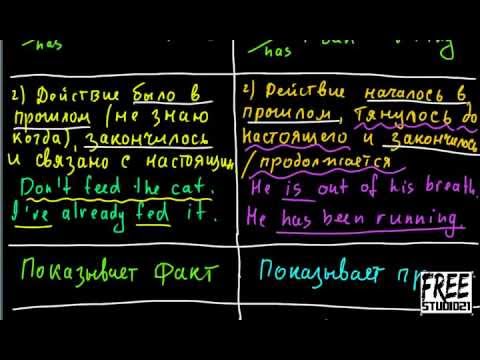 has
has
2) Действие было в
прошлом (не знаю
когда), закончилось
и связано с настоящим
Don't feed the cat.
I've already fed it.
2) Действие началось в
прошлом, тянулось до
настоящего и закончилось
/продолжается
He is out of his breath.
He has been running.
Показывает факт
Показывает
FREE
STUDIO21